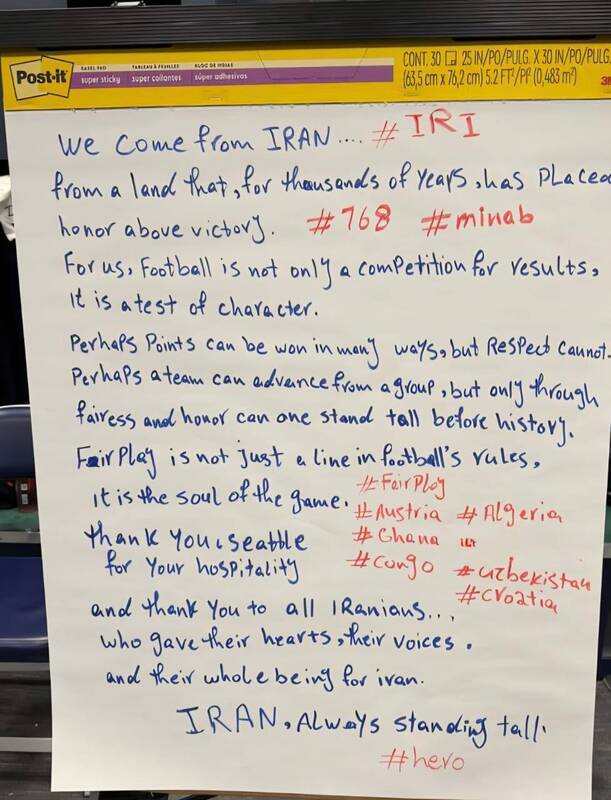 Post-it
EASEL PAD
super sticky
TABLEAU À FEUILLES
super collantes
BLOC DE HOJAS
súper adhesivas
CONT. 30 25 IN/PO/PULG. X 30 IN/PO/PULG.
(63,5 cm x 76,2 cm) 5.2 FT²/PI² (0,483 m²)
3M
We come from IRAN.... #IRI
from a land that, for thousands of years, has placed
honor above victory. #768 #minab
For us, Football is not only a competition for results,
it is a test of character.
Perhaps Points can be won in many ways, but Respect cannot.
Perhaps a team can advance from a group, but only through
fairess and honor can one stand tall before history.
Fair Play is not just a line in football's rules,
it is the soul of the game. #FairPlay
#Austria #Algeria
thank you, seattle #Ghana
for your hospitality #congo #uzbekistan
#croatia
and thank you to all IRanians...
who gave their hearts, their voices.
and their whole being for iran.
IRAN, Always standing tall.
#hero